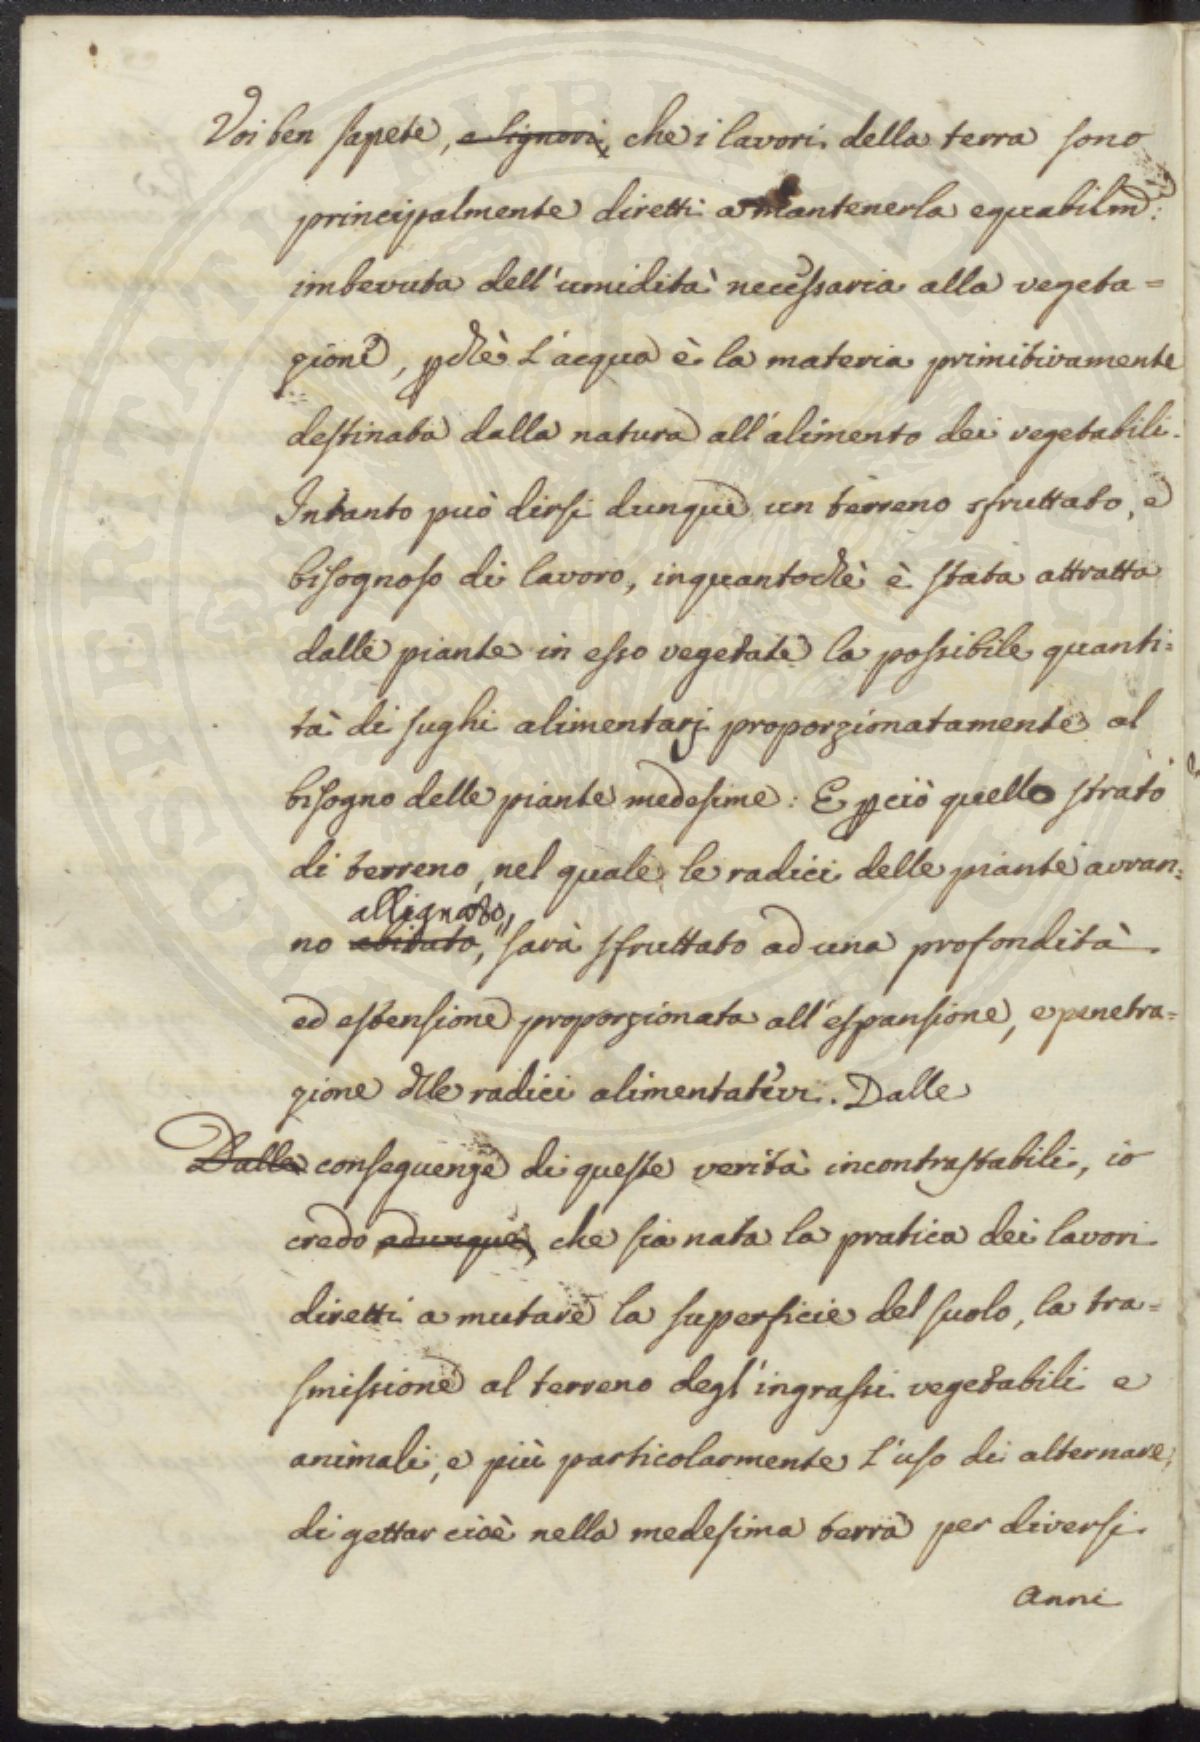 Voi ben sapete, o Signori, che i lavori della terra sono
principalmente diretti a mantenerla equabilm:
imbevuta dell'umidità necessaria alla vegeta=
zione, pchè l'acqua è la materia primitivamente
destinata dalla natura all'alimento dei vegetabili.
Intanto può dirsi dunque un terreno sfruttato, e
bisognoso di lavoro, inquantochè è stata attratta
dalle piante in esso vegetate la possibile quanti=
tà di sughi alimentarj proporzionatamente al
bisogno delle piante medesime: E pciò quello strato
di terreno, nel quale le radici delle piante avran=
allignato,
no abitato, sarà sfruttato ad una profondità
ed estensione proporzionata all'espansione, e penetra=
zione dlle radici alimentative. Dalle
Dalle conseguenze di queste verità incontrastabili, io
credo adunque, che sia nata la pratica dei lavori
diretti a mutare la superficie del suolo, la tra=
smissione al terreno degl'ingrassi vegetabili e
animali, e più particolarmente l'uso di alternare,
di gettar cioè nella medesima terra per diversi
anni
PROSPERITATI PUBLICAE AUGENDAE